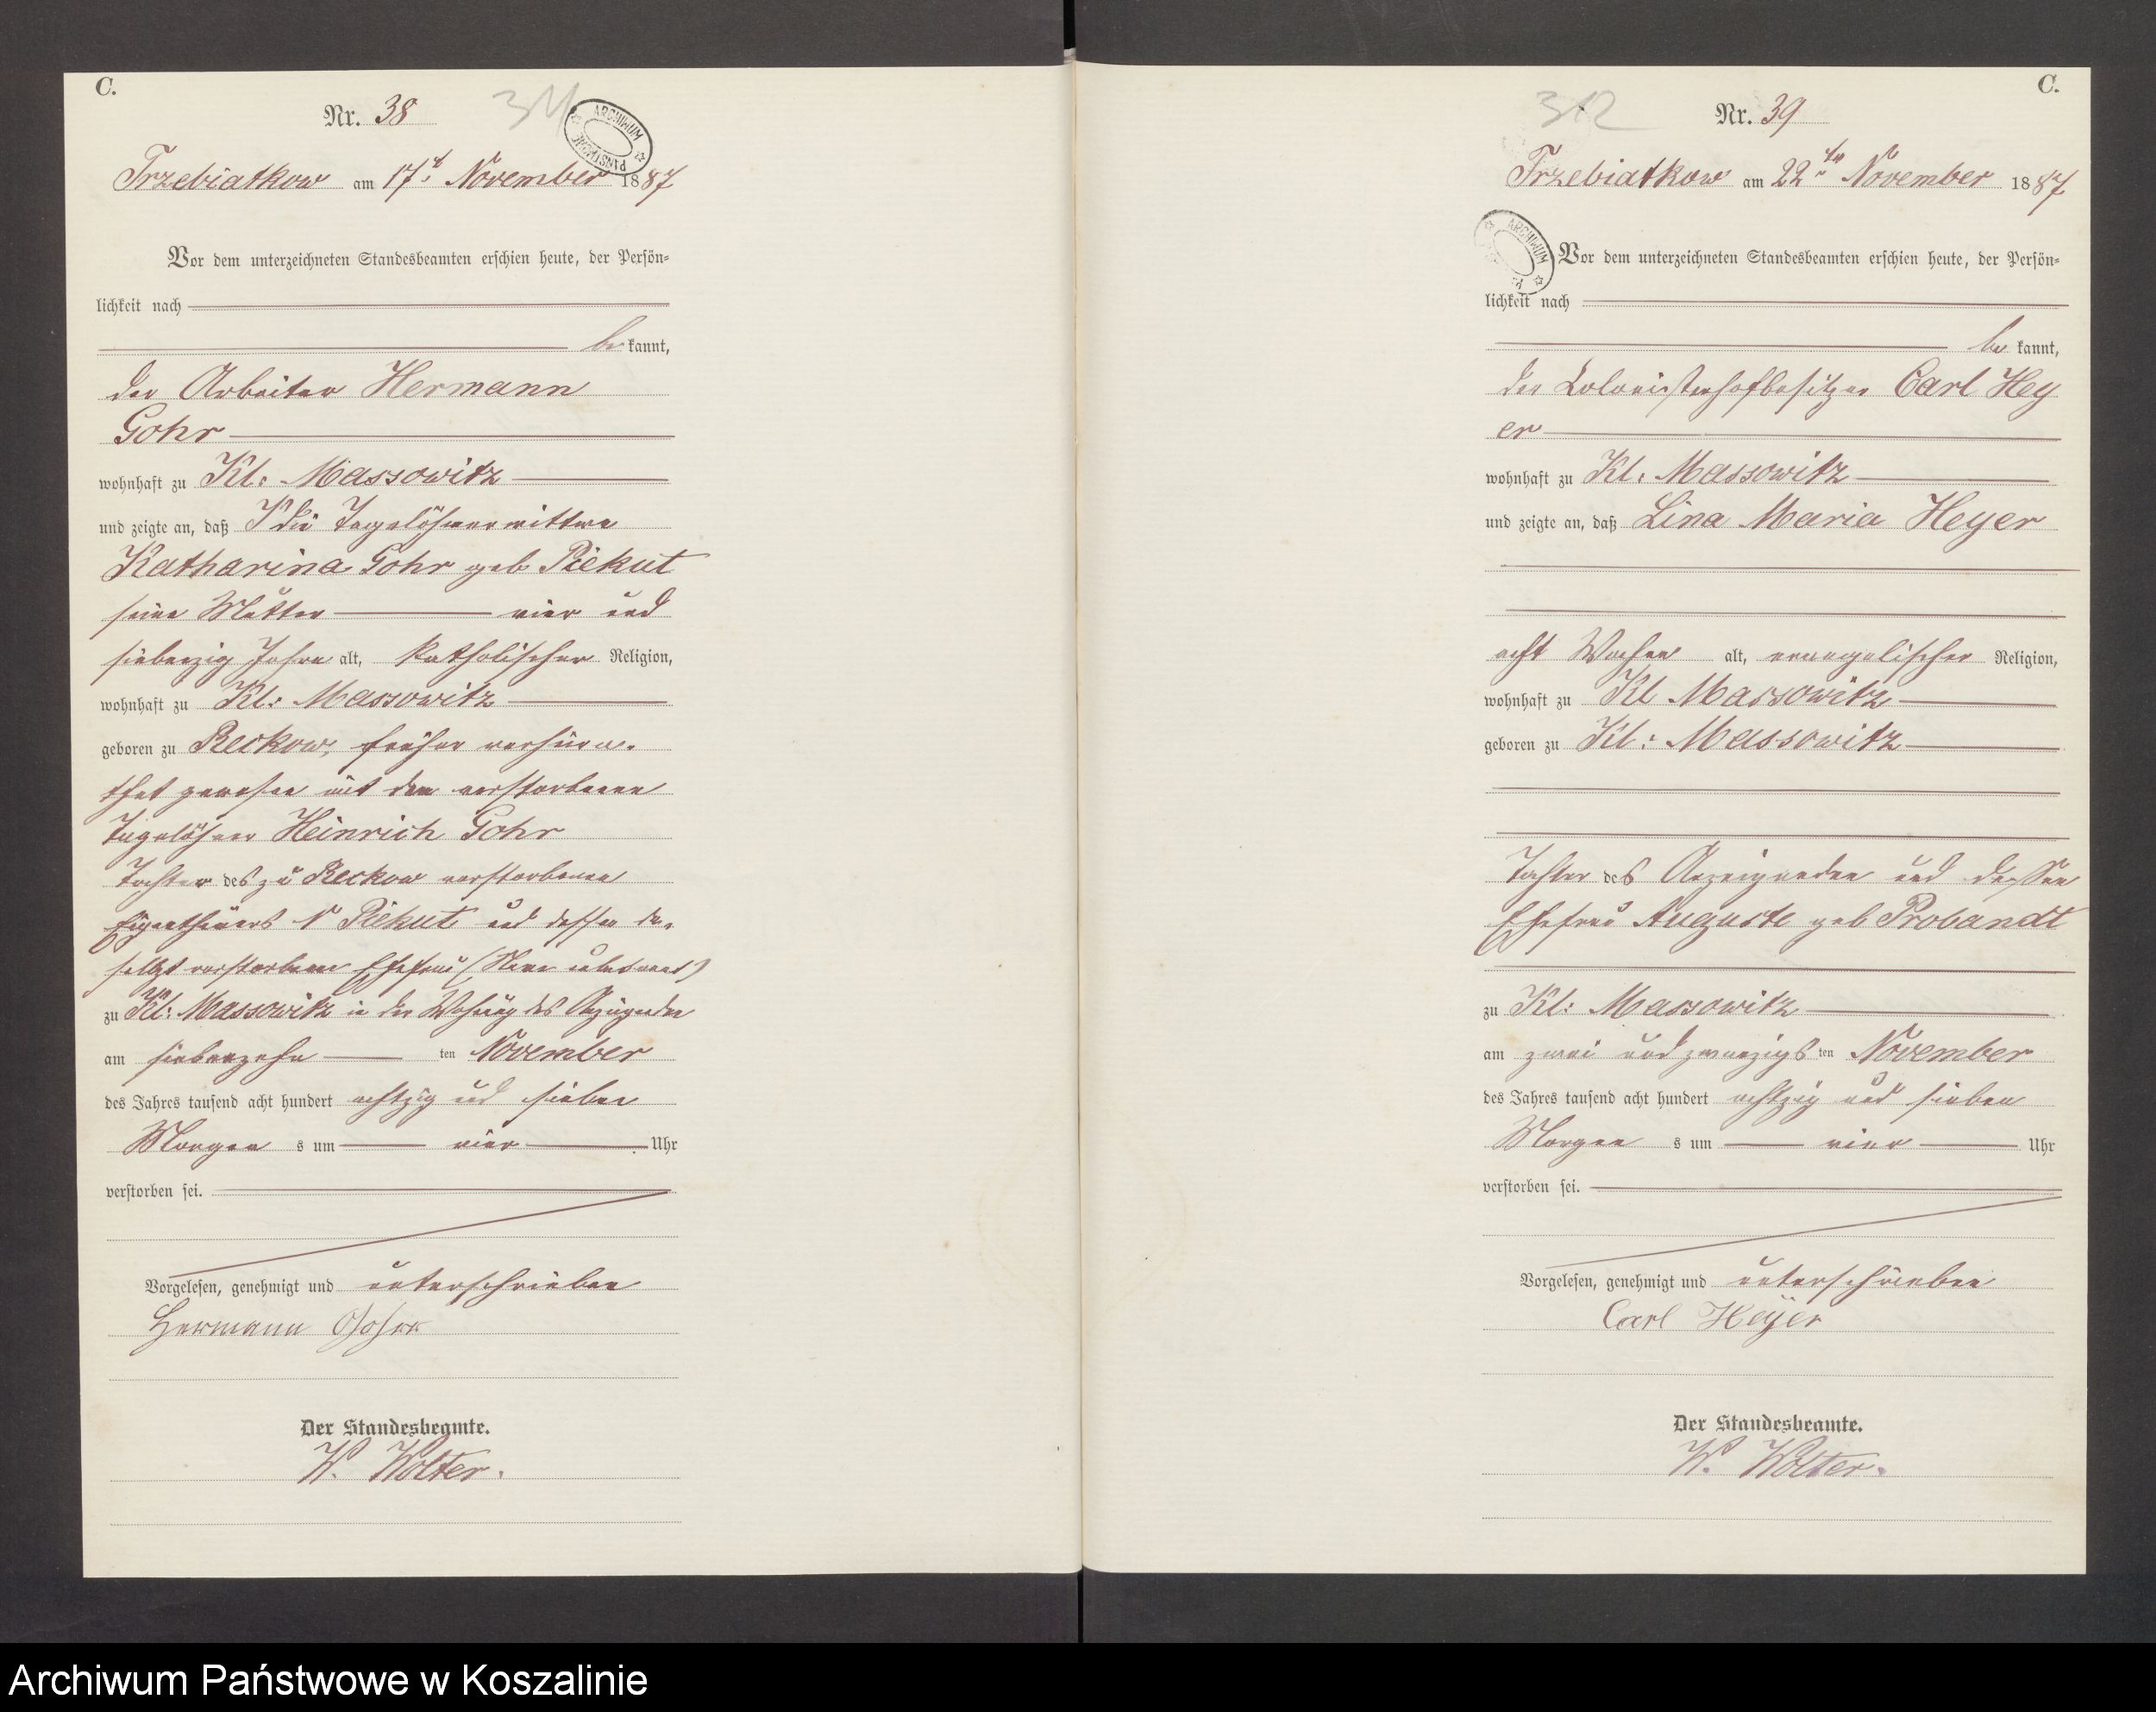 C.
Nr. 38
ARCHIWUM PAŃSTWOWE
Trzebiatkow am 17t. November 1887
Vor dem unterzeichneten Standesbeamten erschien heute, der Persön=
lichkeit nach
be kannt,
der Arbeiter Hermann
Gohr
wohnhaft zu Kl: Massowitz
und zeigte an, daß die Tagelöhnerwittwe
Katharina Gohr geb Piekut
seine Mutter vier und
siebenzig Jahre alt, katholischer Religion,
wohnhaft zu Kl: Massowitz
geboren zu Reckow, früher verheira-
thet gewesen mit dem verstorbenen
Tagelöhner Heinrich Gohr
Tochter des zu Reckow verstorbenen
Eigenthümers N Piekut und dessen da-
selbst verstorbene Ehefrau (Name unbekannt)
zu Kl: Massowitz in der Wohnung des Anzeigenden
am siebenzehn ten November
des Jahres tausend acht hundert achtzig und sieben
Morgen s um vier Uhr
verstorben sei.
Vorgelesen, genehmigt und unterschrieben
Hermann Gohr
Der Standesbeamte.
W. Wolter.
C.
312
Nr. 39
Trzebiatkow am 22ten November 1887
ARCHIWUM
Vor dem unterzeichneten Standesbeamten erschien heute, der Persön=
lichkeit nach
be kannt,
der Kolonistenhofbesitzer Carl Hey
er
wohnhaft zu Kl: Massowitz
und zeigte an, daß Lina Maria Heyer
acht Wochen alt, evangelischer Religion,
wohnhaft zu Kl Massowitz
geboren zu Kl: Massowitz
Tochter des Anzeigenden und dessen
Ehefrau Auguste geb Probandt
zu Kl: Massowitz
am zwei und zwanzigs ten November
des Jahres tausend acht hundert achtzig und sieben
Morgen s um vier Uhr
verstorben sei.
Vorgelesen, genehmigt und unterschrieben
Carl Heyer
Der Standesbeamte.
W. Wolter.
Archiwum Państwowe w Koszalinie